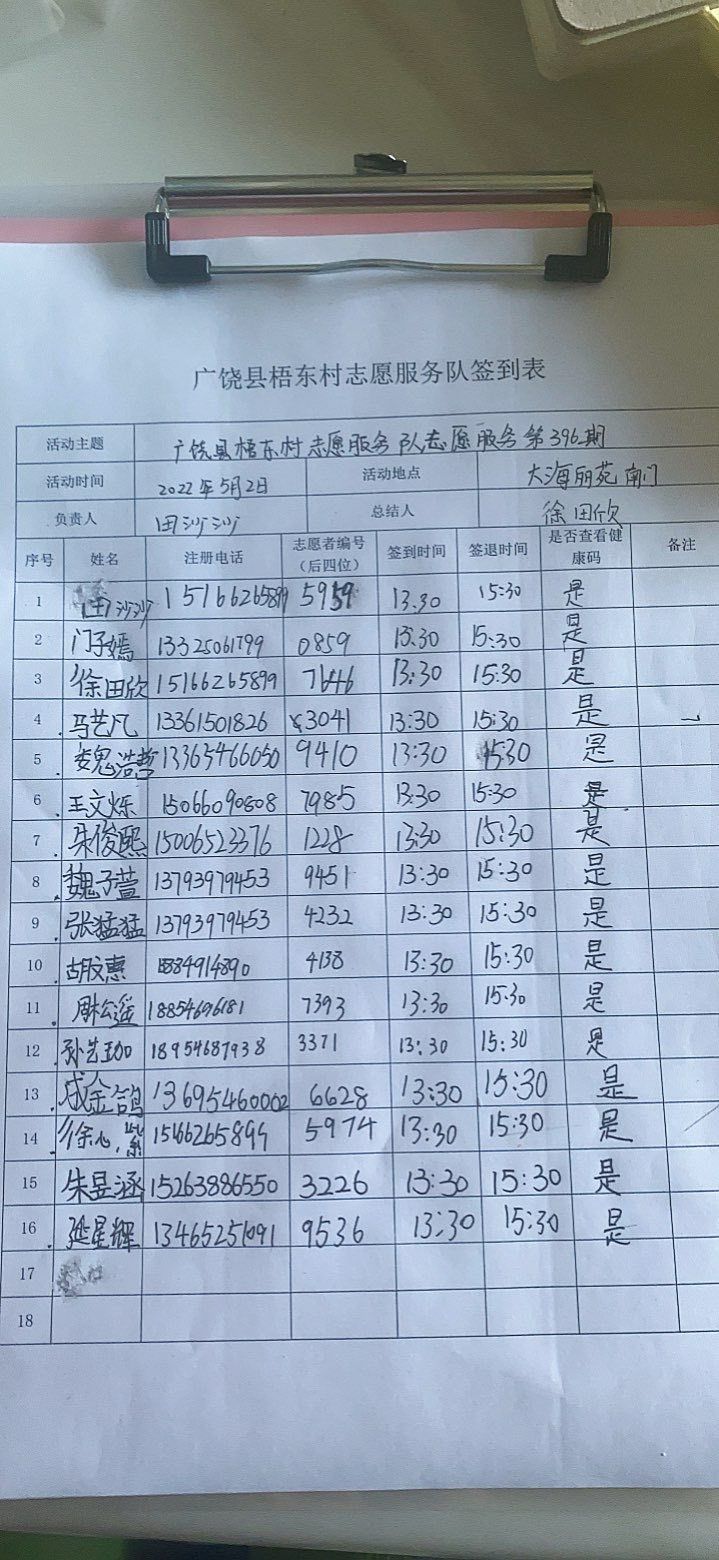 广饶县梧东村志愿服务队签到表
活动主题 广饶县梧东村志愿服务队志愿服务第396期
活动时间 2022年5月2日 活动地点 大海丽苑南门
负责人 田沙沙 总结人 徐田欣
序号 姓名 注册电话 志愿者编号（后四位） 签到时间 签退时间 是否查看健康码 备注
1 田沙沙 15166265899 5959 13:30 15:30 是
2 门子嫣 13325061799 0859 13:30 15:30 是
3 徐田欣 15166265899 7646 13:30 15:30 是
4 马艺凡 13361501826 3041 13:30 15:30 是
5 魏浩哲 13365466050 9410 13:30 15:30 是
6 王文烁 15066090808 7985 13:30 15:30 是
7 朱俊熙 15006523376 1228 13:30 15:30 是
8 魏子萱 13793979453 9451 13:30 15:30 是
9 张猛猛 13793979453 4232 13:30 15:30 是
10 胡文惠 4138 13:30 15:30 是
11 18854696181 7393 13:30 15:30 是
12 18954687938 3371 13:30 15:30 是
13 成金鸽 13695460002 6628 13:30 15:30 是
14 徐心紫 15166265899 5974 13:30 15:30 是
15 朱昱涵 15263886550 3226 13:30 15:30 是
16 延星辉 13465251091 9536 13:30 15:30 是
17
18